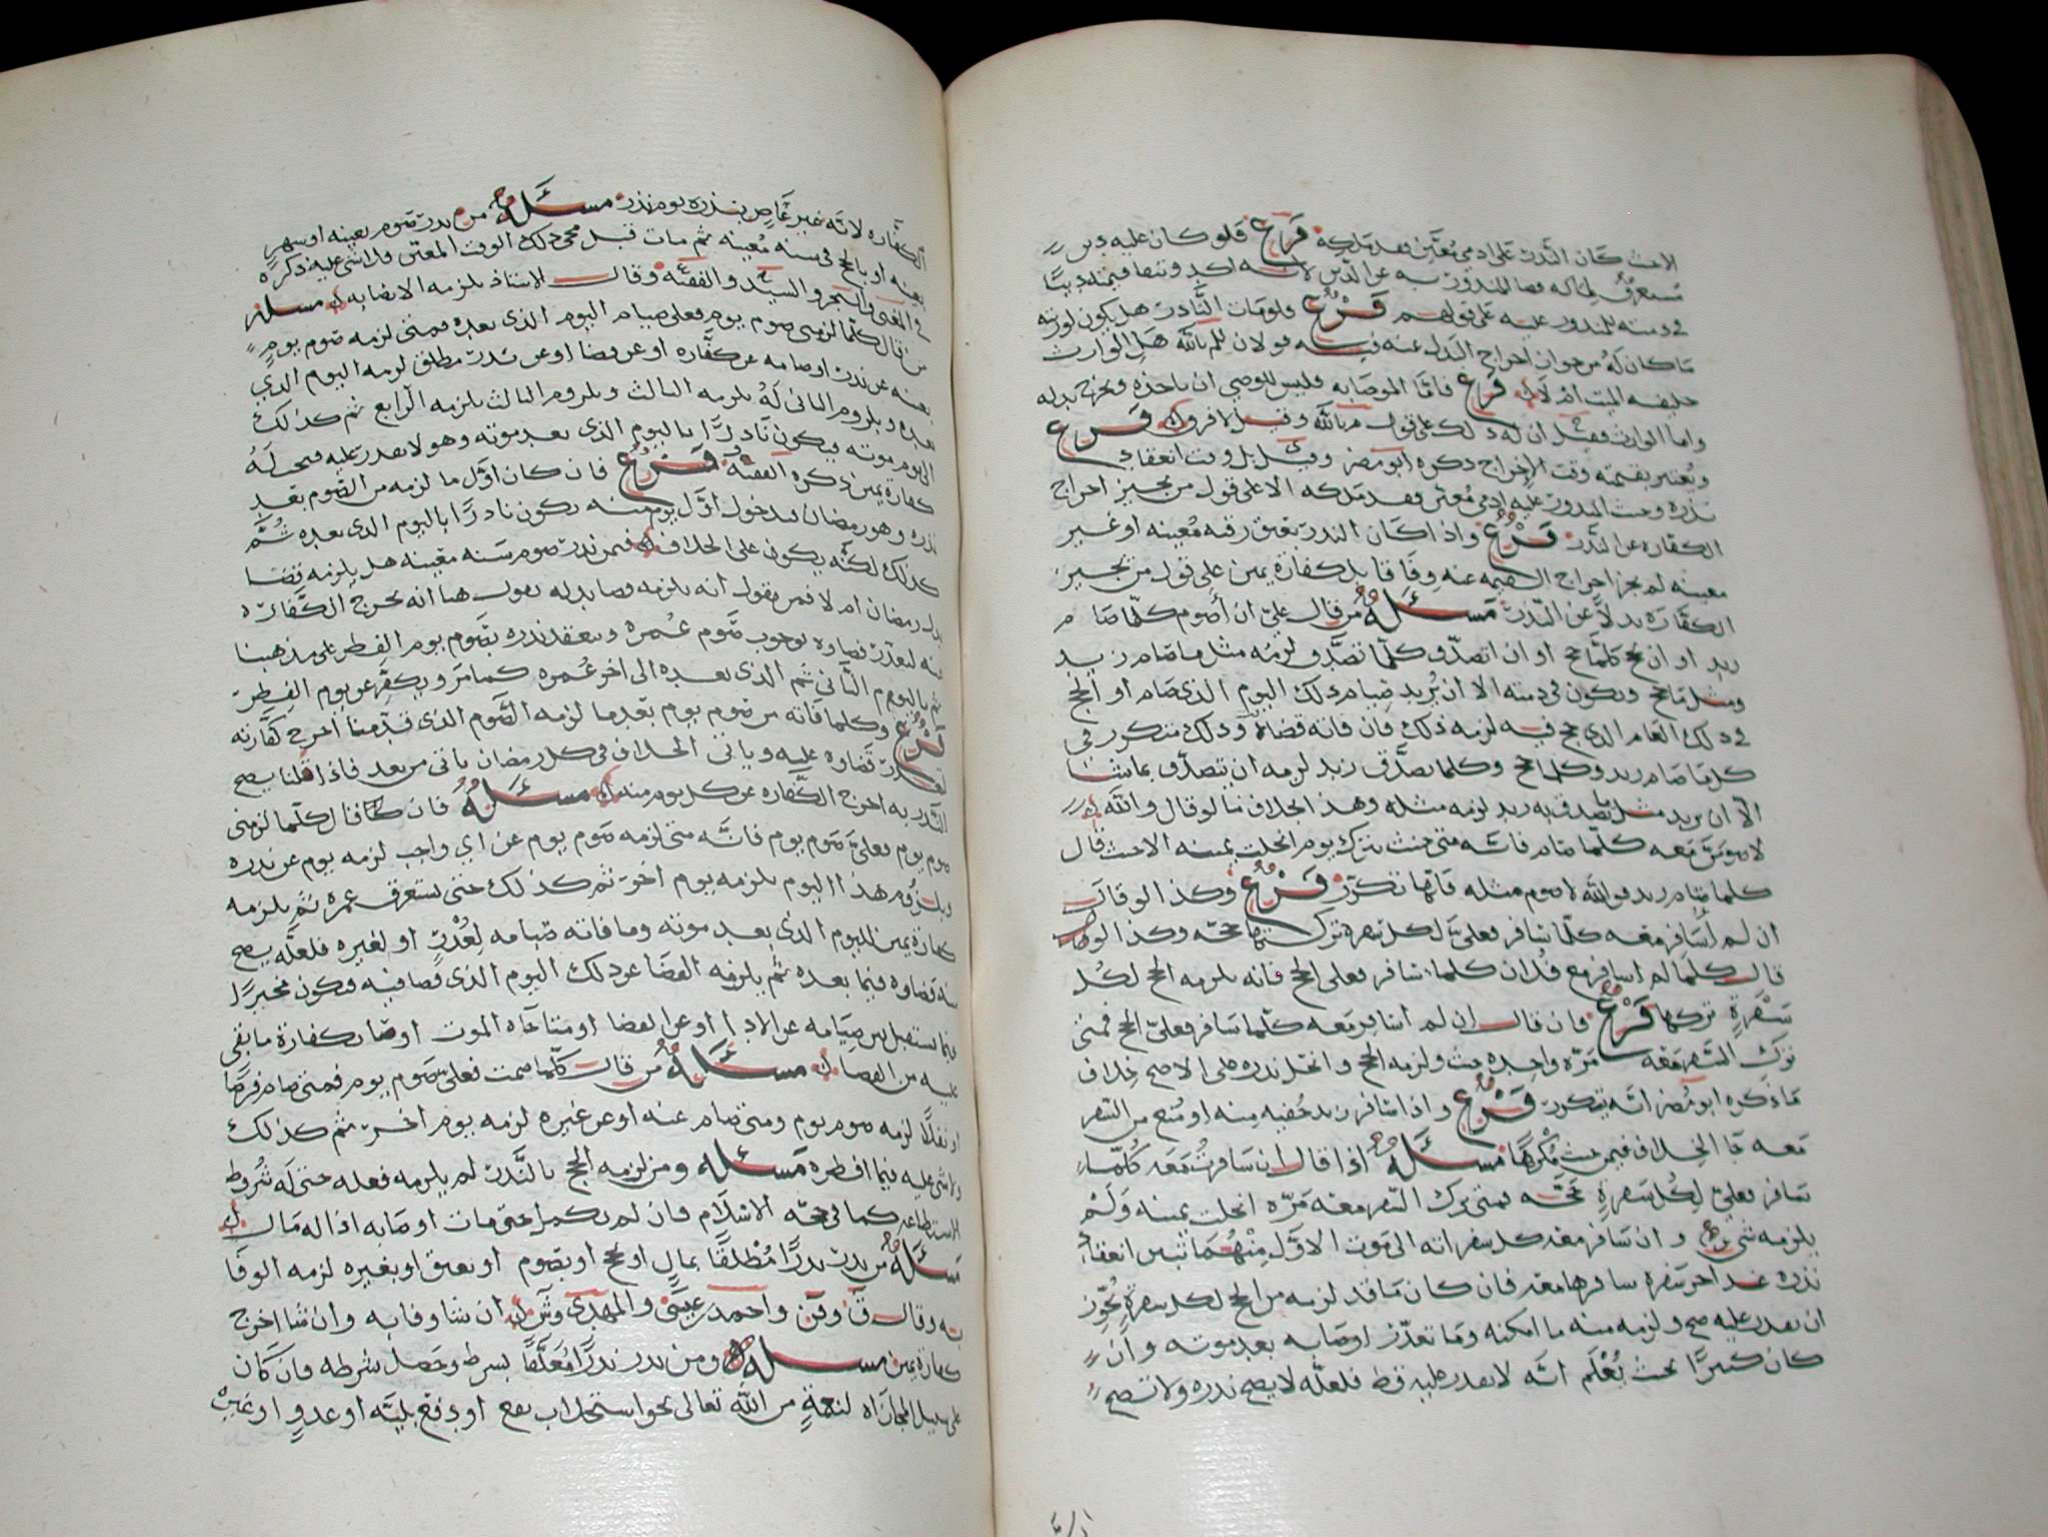 الا حيث كان النذر على ادمي معين فقد ملكه فرع فلو كان عليه دين
مستغرق لماله
في ذمته للمنذور عليه على قولهم فرع فلو مات النادر هل يكون لورثته
ما كان له من جواز اخراج البدل عنه فيه قولان للم بالله هل الوارث
خليفه الميت ام لا فرع فاما الموصابه فليس للوصي ان ياخذه ويخرج بدله
واما الوارث فقيل ان له ذلك على قول م بالله وقيل لا فرق فرع
ويعتبر بقيمته وقت الاخراج ذكره ابو مضر وقيل بل وقت انعقاد
نذره وحيث المنذور عليه ادمي معين فقد ملكه الا على قول من يجيز اخراج
الكفاره عن النذر فرع واذا كان النذر بعتق رقبه معينه او غير
معينه لم يجز اخراج القيمه عنه وفاقا بل كفارة يمين على قول من يجيز
الكفاره بدلا عن النذر مسئلة من قال علي ان أصوم كلما صام
زيد او ان حج كلما حج او ان اتصدق كلما تصدق لزمه مثل ما صام زيد
ومثل ما حج ويكون في ذمته الا ان يريد صيام ذلك اليوم الذي صام او الحج
في ذلك العام الذي حج فيه لزمه ذلك فان فاته قضاه وذلك متكرر في
كل ما صام زيد وكلما حج وكلما تصدق زيد لزمه ان يتصدق بما شا
الا ان يريد مثل ما تصدق به زيد لزمه مثله وهذا بخلاف ما لو قال والله
معه كلما صام فانه متى حنث بترك يوم انحلت يمينه الا حيث قال
كلما صام زيد فوالله لاصوم مثله فانها تكرر فرع وكذا لو قال
ان لم أسافر معه كلما سافر فعلي لكل سفرة تركتها حجه وكذا لو
قال كلما لم اسافر مع فلان كلما سافر فعلي الحج فانه يلزمه الحج لكل
سفرة تركها فرع فان قال ان لم اسافر معه كلما سافر فعلي الحج فمتى
ترك السفر معه مره واحده حنث ولزمه الحج وانحل نذره على الاصح خلاف
ما ذكره ابو مضر انه يتكرر فرع واذا سافر زيد خفيه منه او منع من السفر
معه جا الخلاف فيمن حنث مكرها مسئلة اذا قال ان سافرت معه كلما
سافر فعلي لكل سفرة حجه فمتى ترك السفر معه مره انحلت يمينه ولم
يلزمه شي وان سافر معه كل سفراته الى موت الاول منهما تبين انعقاد
نذره عند اخر سفرة سافرها معه فان كان ما قد لزمه من الحج لكل سفرة يجوز
ان يقدر عليه صح ولزمه منه ما امكنه وما تعذر اوصا به بعد موته وان
كان كثيرا بحيث يعلم انه لا يقدر عليه قط فلعله لا يصح نذره ولا تصح
الكفاره لانه غير عاص بنذره يوم نذر مسئلة من نذر صوم بعينه او شهر
بعينه او بالحج في سنه معينه ثم مات قبل مجي ذلك الوقت المعين فلا شي عليه ذكره
في المغني والبحر والسيد والفقيه وقال الاستاذ يلزمه الايصا به مسئله
من قال كلما لزمني صوم يوم فعلي صيام اليوم الذي بعده فمتى لزمه صوم يوم
بعينه عن نذر او صامه عن كفاره او عن قضا او عن نذر مطلق لزمه اليوم الذي
بعده وبلزوم الثاني له يلزمه الثالث وبلزوم الثالث يلزمه الرابع ثم كذلك
الى يوم موته فيكون نادرا باليوم الذي بعد موته وهو لا يقدر عليه
كفارة يمين ذكره الفقيه فرع فان كان اول ما لزمه من الصوم بعد
نذره وهو رمضان فبدخول اول يوم منه يكون نادرا باليوم الذي بعده ثم
كذلك لكنه يكون على الخلاف فيمن نذر صوم سنه معينه هل يلزمه قضا
بدل رمضان ام لا فمن يقول انه يلزمه قضا بدله يقول هنا انه يخرج الكفاره
عنه لتعذر قضاوه لوجوب صوم عمره وينعقد نذره بصوم يوم الفطر على مذهبنا
ثم باليوم الثاني ثم الذي بعده الى اخر عمره كما مر ويكفر عن يوم الفطر
فرع وكلما فاته من صوم يوم بعد ما لزمه الصوم الذي قدمنا اخرج كفارته
لتعذر قضاوه عليه وياتي الخلاف في كل رمضان ياتي من بعد فاذا قلنا يصح
النذر به اخرج الكفاره عن كل يوم منه مسئلة فان قال كلما لزمني
صوم يوم فعلي صوم يوم فانه متى لزمه صوم يوم عن اي واجب لزمه يوم عن نذره
وبلزوم هذا اليوم يلزمه يوم اخر ثم كذلك حتى يستغرق عمره ثم يلزمه
كفارة يمين لليوم الذي بعد موته وما فاته صيامه لعذر او لغيره فلعله يصح
منه قضاوه فيما بعده ثم يلزمه القضا عن ذلك اليوم الذي قضا فيه فيكون مخيرا
فيما يستقبل بين صيامه عن الادا او عن القضا او متا جاه الموت اوصا بكفارة ما بقي
عليه من القضا مسئلة من قال كلما صمت فعلي صوم يوم فمتى صام فرضا
او نفلا لزمه صوم يوم ومتى صام عنه او عن غيره لزمه يوم اخر ثم كذلك
ولا شي عليه فيما افطره مسئله ومن لزمه الحج بالنذر لم يلزمه فعله حتى له شروط
الاستطاعه كما في حجه الاسلام فان لم يكمل حتى مات اوصا به اذا له مال
مسئلة من نذر نذرا مطلقا بمال او حج او بصوم او بعتق او بغيره لزمه الوفا
به وقال ق وقن واحمد بن عيسى والمهدي وش ان شا وفا به وان شا اخرج
كفارة يمين مسئله ومن نذر نذرا معلقا بشرط وحصل شرطه فان كان
على سبيل المجازاه لنعمة من الله تعالى نحو استجلاب نفع او دفع بليه او عدو او غير